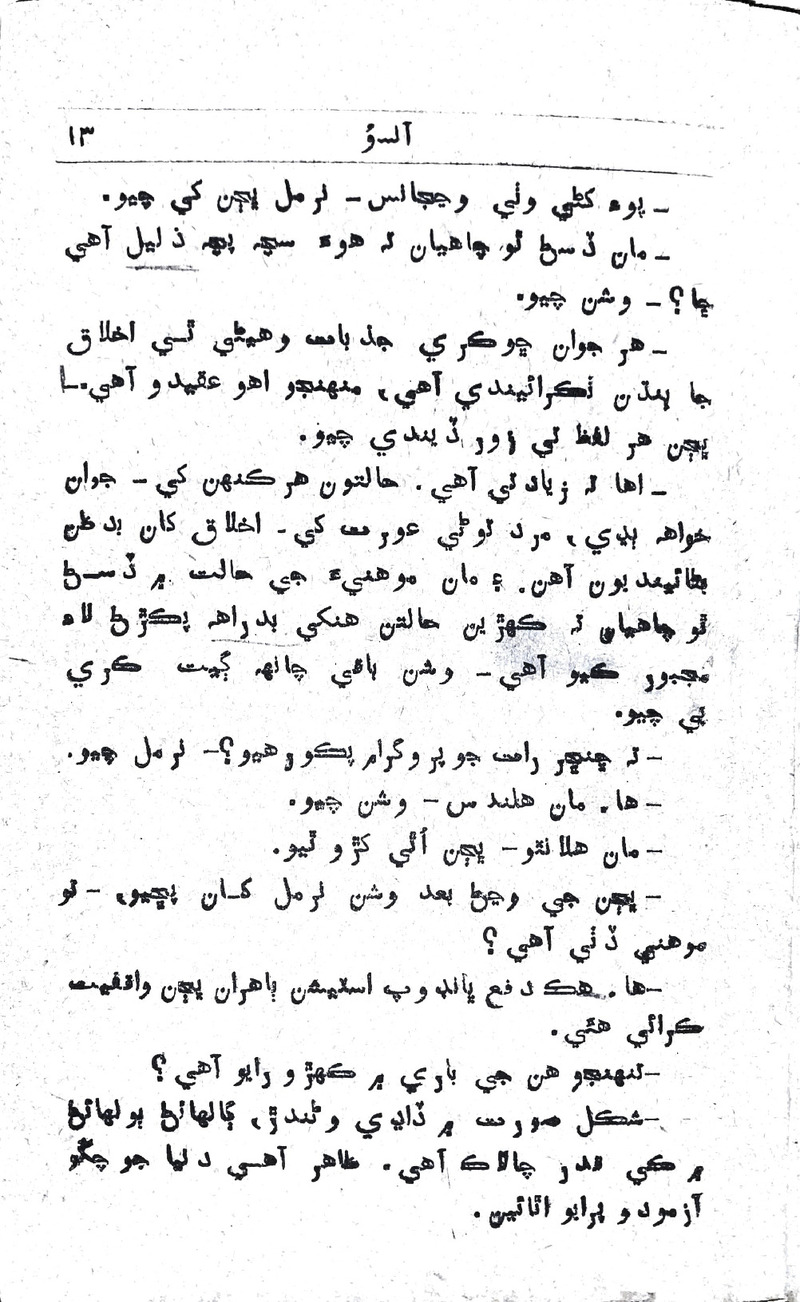 آلسوُ ١٣
_ پوءِ کڻي وٺي وڃجانس_ نرمل ڀڃن کي چيو.
_ مان ڏسڻ ٿو چاهيان تہ هوءَ سچہ پچہ ذليل آهي
ڇا؟_ وشن چيو.
_ هر جوان ڇوڪري جذبات وهيڻي ٿي اخلاق
جا ٻنڌن ٺڪرائيندي آهي، منهنجو اهو عقيدو آهي._
ڀڃن هر لفظ تي زور ڏيندي چيو.
_ اها تہ زيادتي آهي. حالتون هرڪنهن کي_ جوان
خواهہ ٻڍي، مرد توڻي عورت کي_ اخلاق کان بدظن
بڻائينديون آهن. ۽ مان موهنيءَ جي حالت ۾ ڏسڻ
ٿو چاهيان تہ ڪهڙين حالتن هنکي بدراهہ پڪڙڻ لاءِ
مجبور ڪيو آهي_ وشن باقي چانهہ ڳيت ڪري
پي چيو.
_ تہ ڇنڇر رات جو پروگرام پڪو رهيو؟_ نرمل چيو.
_ ها. مان هلندس_ وشن چيو.
_ مان هلانٿو_ ڀڃن اُٿي کڙو ٿيو.
_ ڀڃن جي وڃڻ بعد وشن نرمل کان پڇيو، _تو
موهني ڏٺي آهي؟
_ها. هڪ دفع ڀانڊوپ اسٽيشن ٻاهران ڀڃن واقفيت
ڪرائي هئي.
_تنهنجو هن جي باري ۾ ڪهڙو رايو آهي؟
_شڪل صورت ۾ ڏاڍي وڻندڙ، ڳالهائڻ ٻولهائڻ
۾ ڪي قدر چالاڪ آهي. ظاهر آهي دنيا جو چڱو
آزمودو پرايو اٿائين.